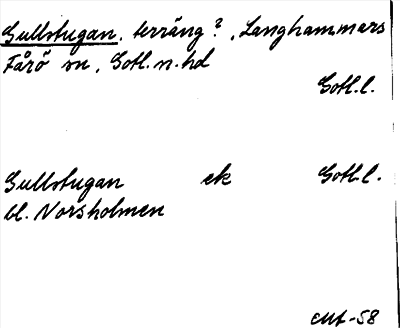 Gullstugan, terräng?, Langhammars
Fårö sn, Gotl. n. hd
Gotl.l.
Gullstugan ek Gotl.l.
bl. Norsholmen
-58